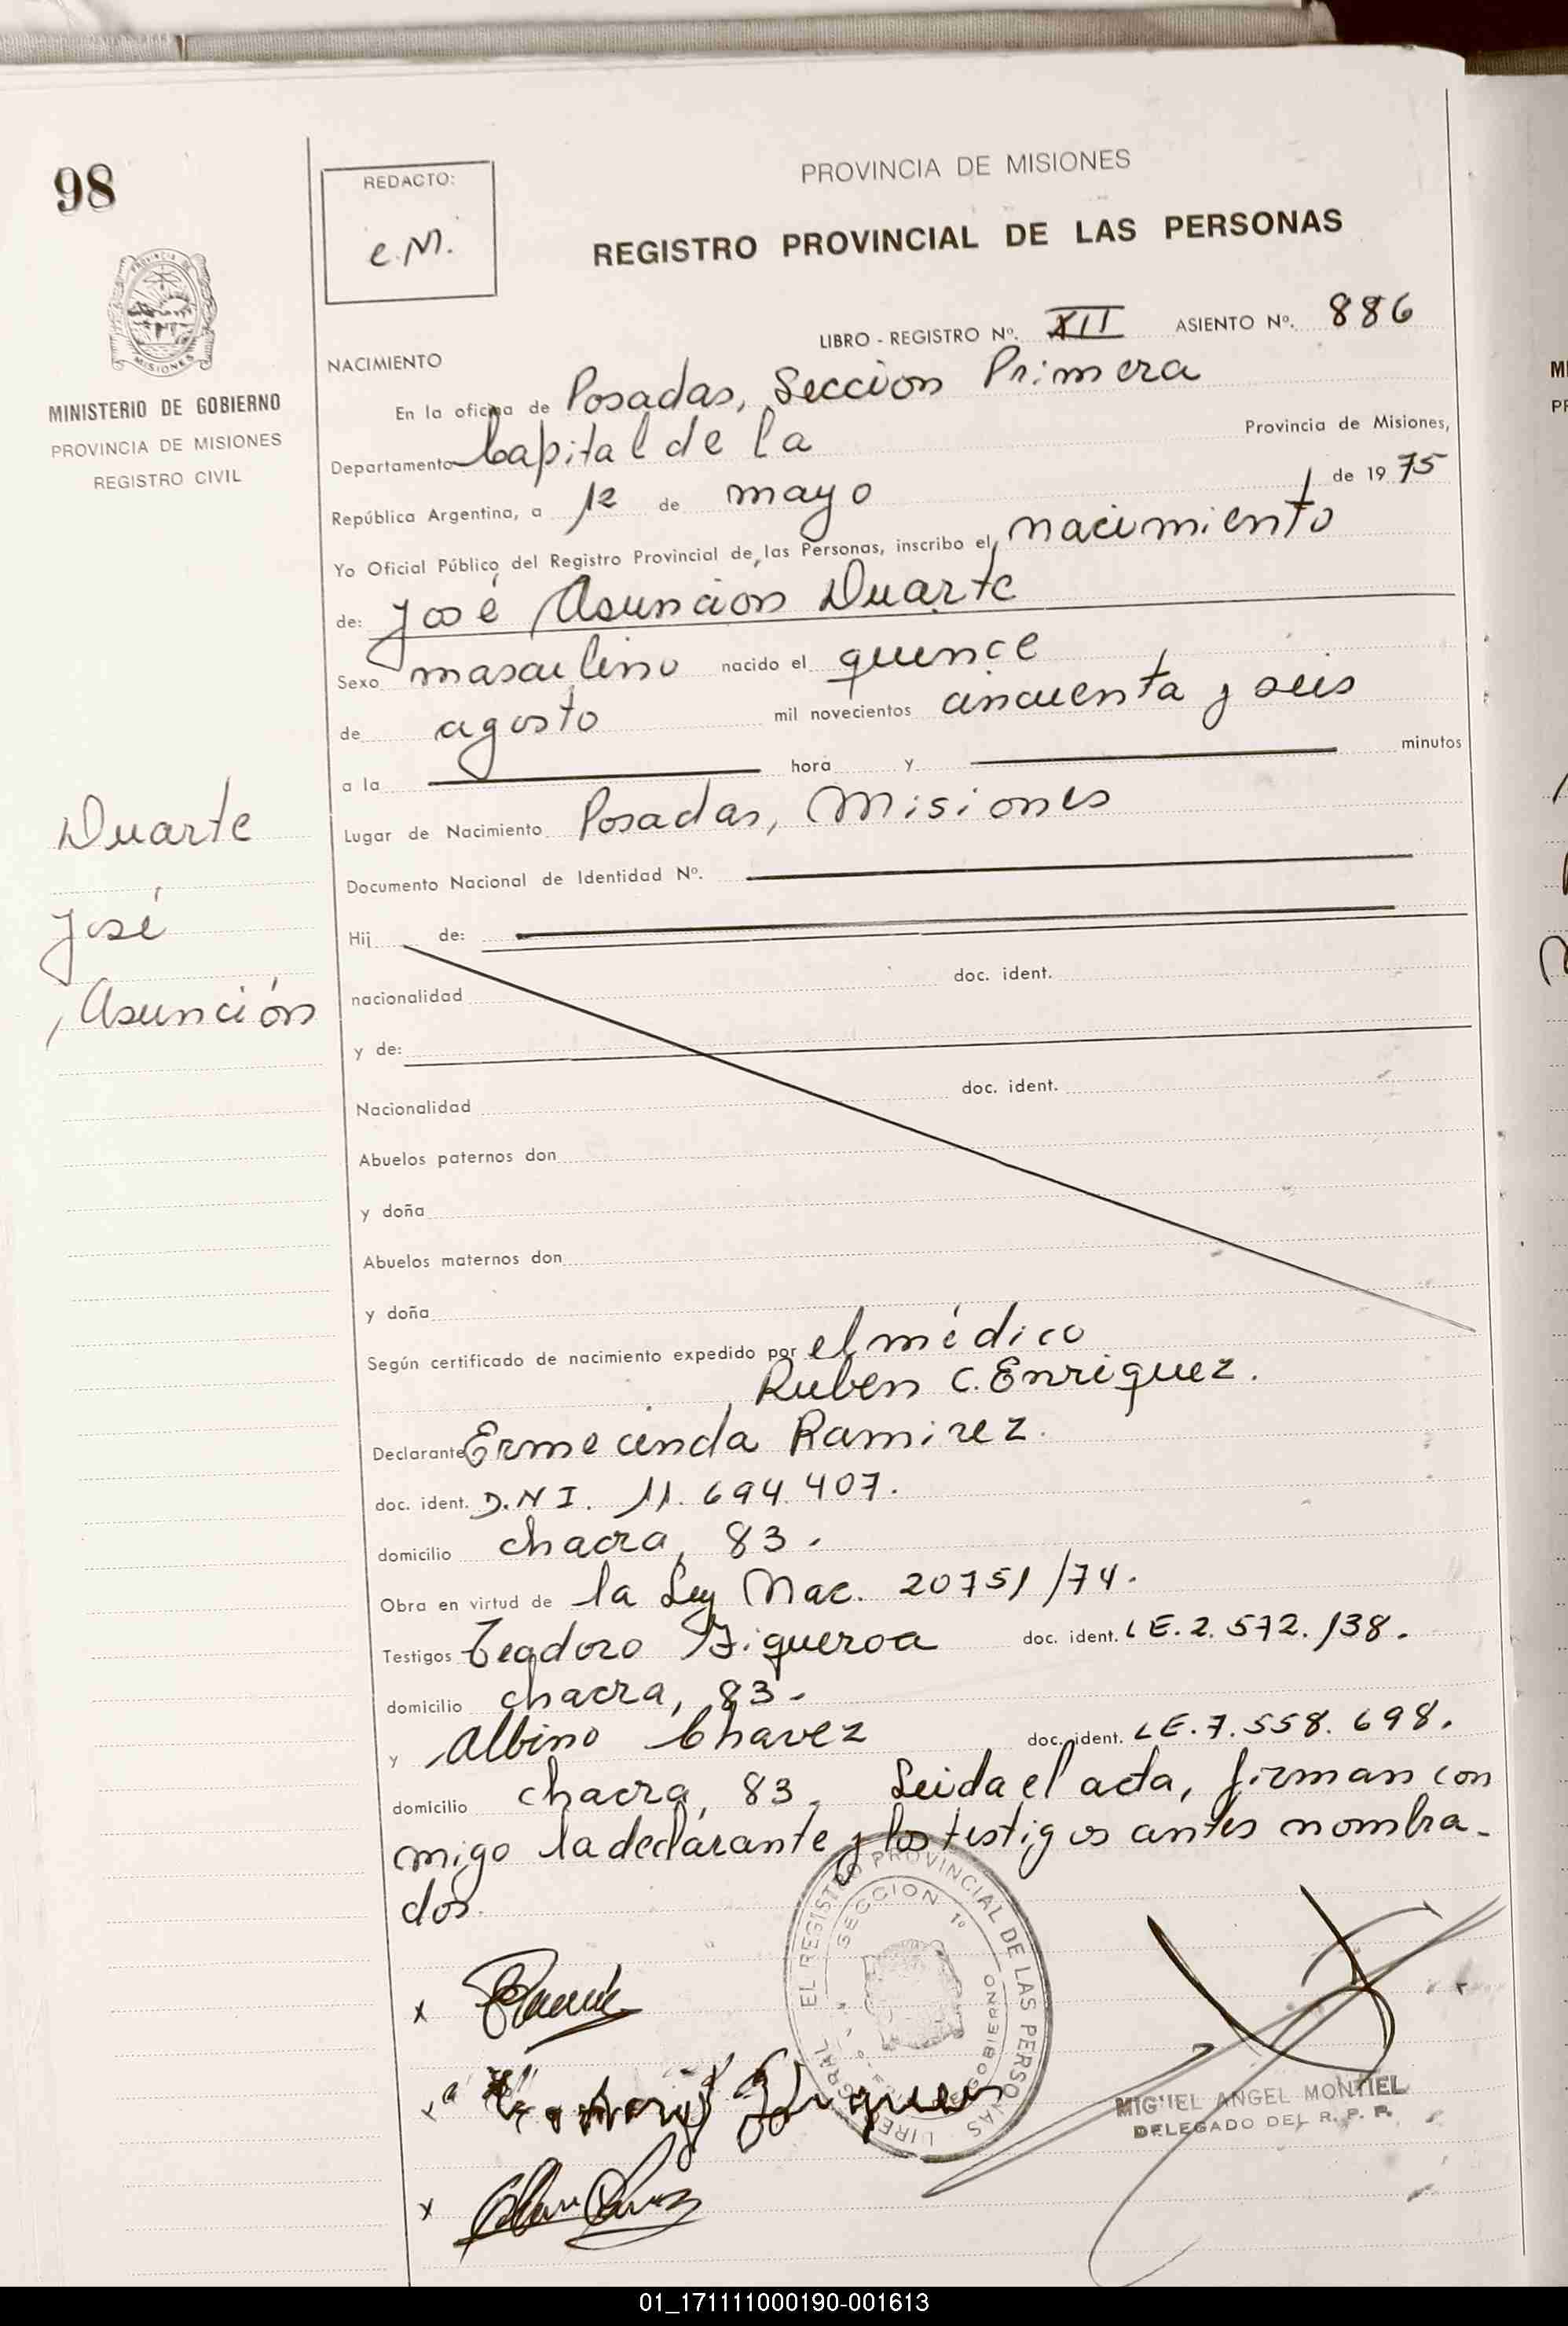 98
REDACTO:
e.M.
PROVINCIA DE MISIONES
REGISTRO PROVINCIAL DE LAS PERSONAS
PROVINCIA DE
MISIONES
MINISTERIO DE GOBIERNO
PROVINCIA DE MISIONES
REGISTRO CIVIL
LIBRO - REGISTRO Nº. XII ASIENTO Nº. 886
NACIMIENTO
En la oficina de Posadas, Seccion Primera
Departamento Capital de la Provincia de Misiones,
República Argentina, a 12 de mayo de 1975
Yo Oficial Público del Registro Provincial de las Personas, inscribo el nacimiento
de: José Asunción Duarte
Sexo masculino nacido el quince
de agosto mil novecientos cincuenta y seis
a la hora y minutos
Lugar de Nacimiento Posadas, Misiones
Documento Nacional de Identidad Nº.
Duarte
José
Asunción
Hij de:
nacionalidad doc. ident.
y de:
Nacionalidad doc. ident.
Abuelos paternos don
y doña
Abuelos maternos don
y doña
Según certificado de nacimiento expedido por el médico
Ruben C. Enriquez.
Declarante Ermecinda Ramirez.
doc. ident. D.N I. 11.694.407.
domicilio chacra, 83.
Obra en virtud de la Ley Nac. 20751/74.
Testigos Teodoro Figueroa doc. ident. L E. 2.572.138.
domicilio chacra, 83.
y Albino Chavez doc. ident. L E. 7.558.698.
domicilio chacra, 83. Leida el acta, firman con
migo la declarante y los testigos antes nombra-
dos.
EL REGISTRO PROVINCIAL DE LAS PERSONAS
SECCION 1º
GOBIERNO
x
x
MIGUEL ANGEL MONTIEL
DELEGADO DEL R. P. P.
01_171111000190-001613